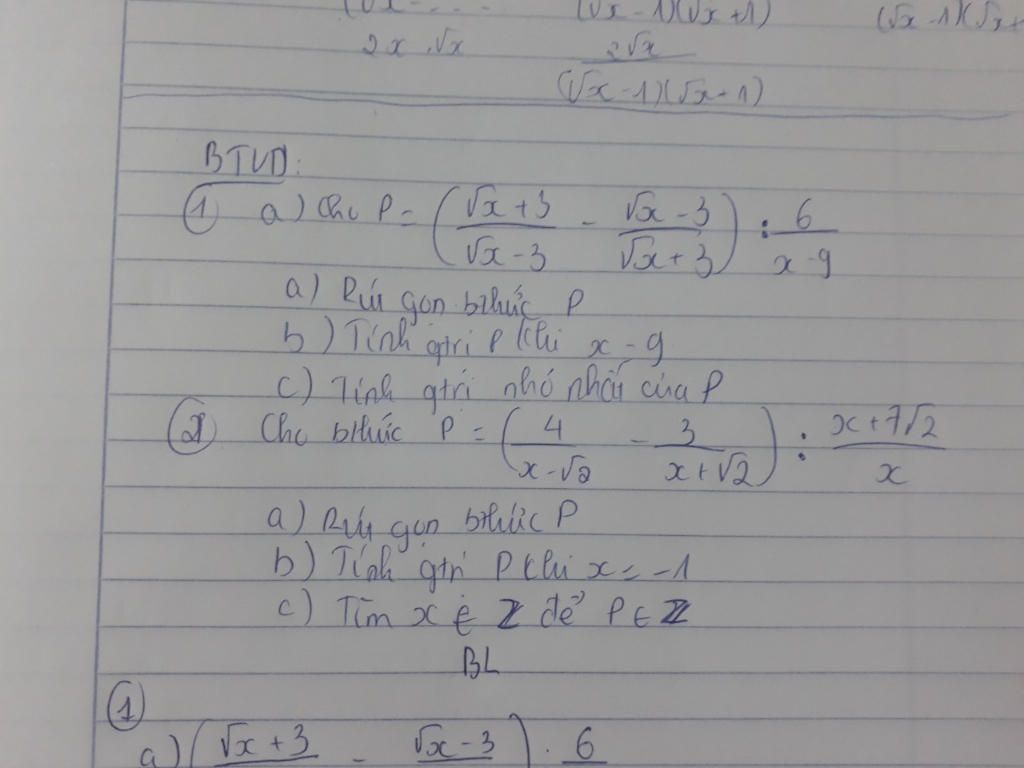 (√x - . . . (√x - 1)(√x + 1) (√x - 1)(√x +
2x √x 2√x / (√x - 1)(√x - 1)
BTVD:
① a) Cho P = ((√x + 3)/(√x - 3) - (√x - 3)/(√x + 3)) : 6/(x - 9)
a) Rút gọn bthức P
b) Tính gtrị P khi x = 9
c) Tính gtrị nhỏ nhất của P
② Cho bthức P = (4/(x - √2) - 3/(x + √2)) : (x + 7√2)/x
a) Rút gọn bthức P
b) Tính gtrị P khi x = -1
c) Tìm x ∈ Z để P ∈ Z
BL
①
a) (√x + 3 - √x - 3) . 6